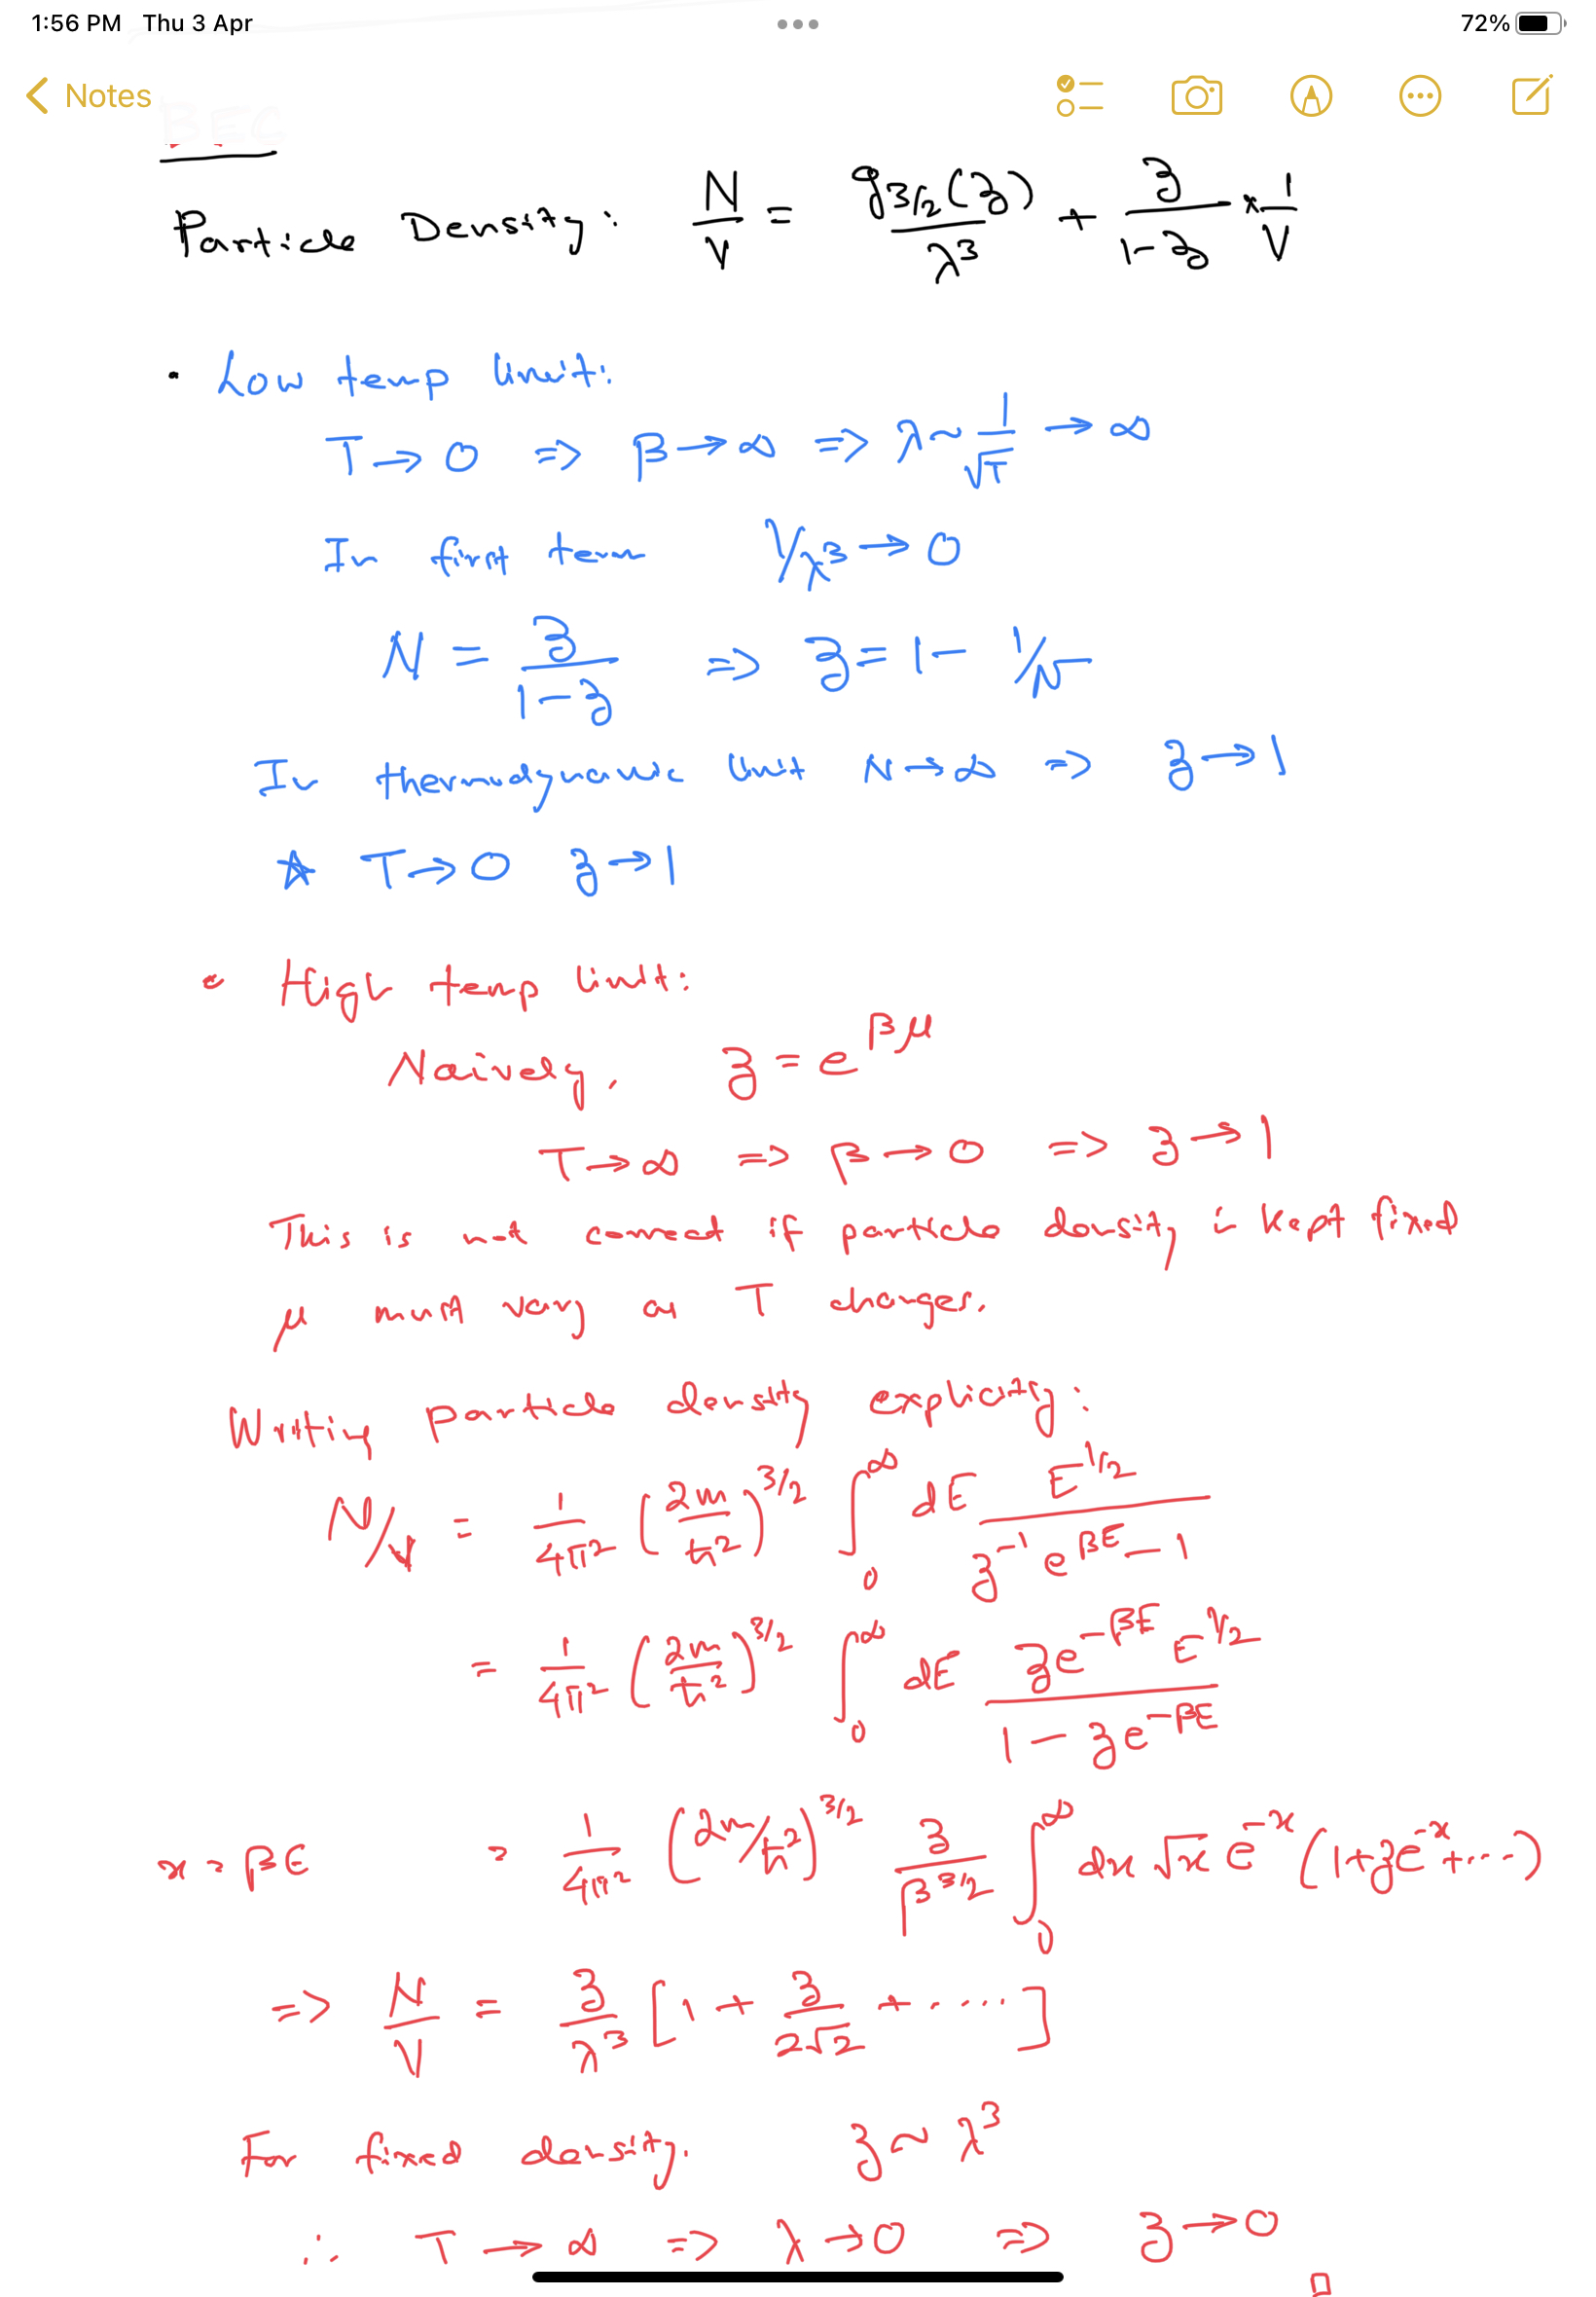 1:56 PM Thu 3 Apr 72%
Notes
BEC
Particle Density: N/V = g3/2(z)/λ³ + z/(1-z) × 1/V
• Low temp limit:
T → 0 => β → ∞ => λ ~ 1/√T → ∞
In first term 1/λ³ → 0
N = z/(1-z) => z = 1 - 1/N
In thermodynamic limit N → ∞ => z → 1
☆ T → 0 z → 1
• High temp limit:
Naively, z = e^βμ
T → ∞ => β → 0 => z → 1
This is not correct if particle density is kept fixed
μ must vary as T changes.
Writing particle density explicitly:
N/V = 1/4π² (2m/ħ²)^3/2 ∫₀^∞ dE E^1/2/(z⁻¹e^βE - 1)
= 1/4π² (2m/ħ²)^3/2 ∫₀^∞ dE ze^-βE E^1/2/(1 - ze^-βE)
x = βE = 1/4π² (2m/ħ²)^3/2 z/β^3/2 ∫₀^∞ dx √x e^-x (1+ze^-x+...)
=> N/V = z/λ³ [1 + z/2√2 + .....]
For fixed density, z ~ λ³
∴ T → ∞ => λ → 0 => z → 0
□